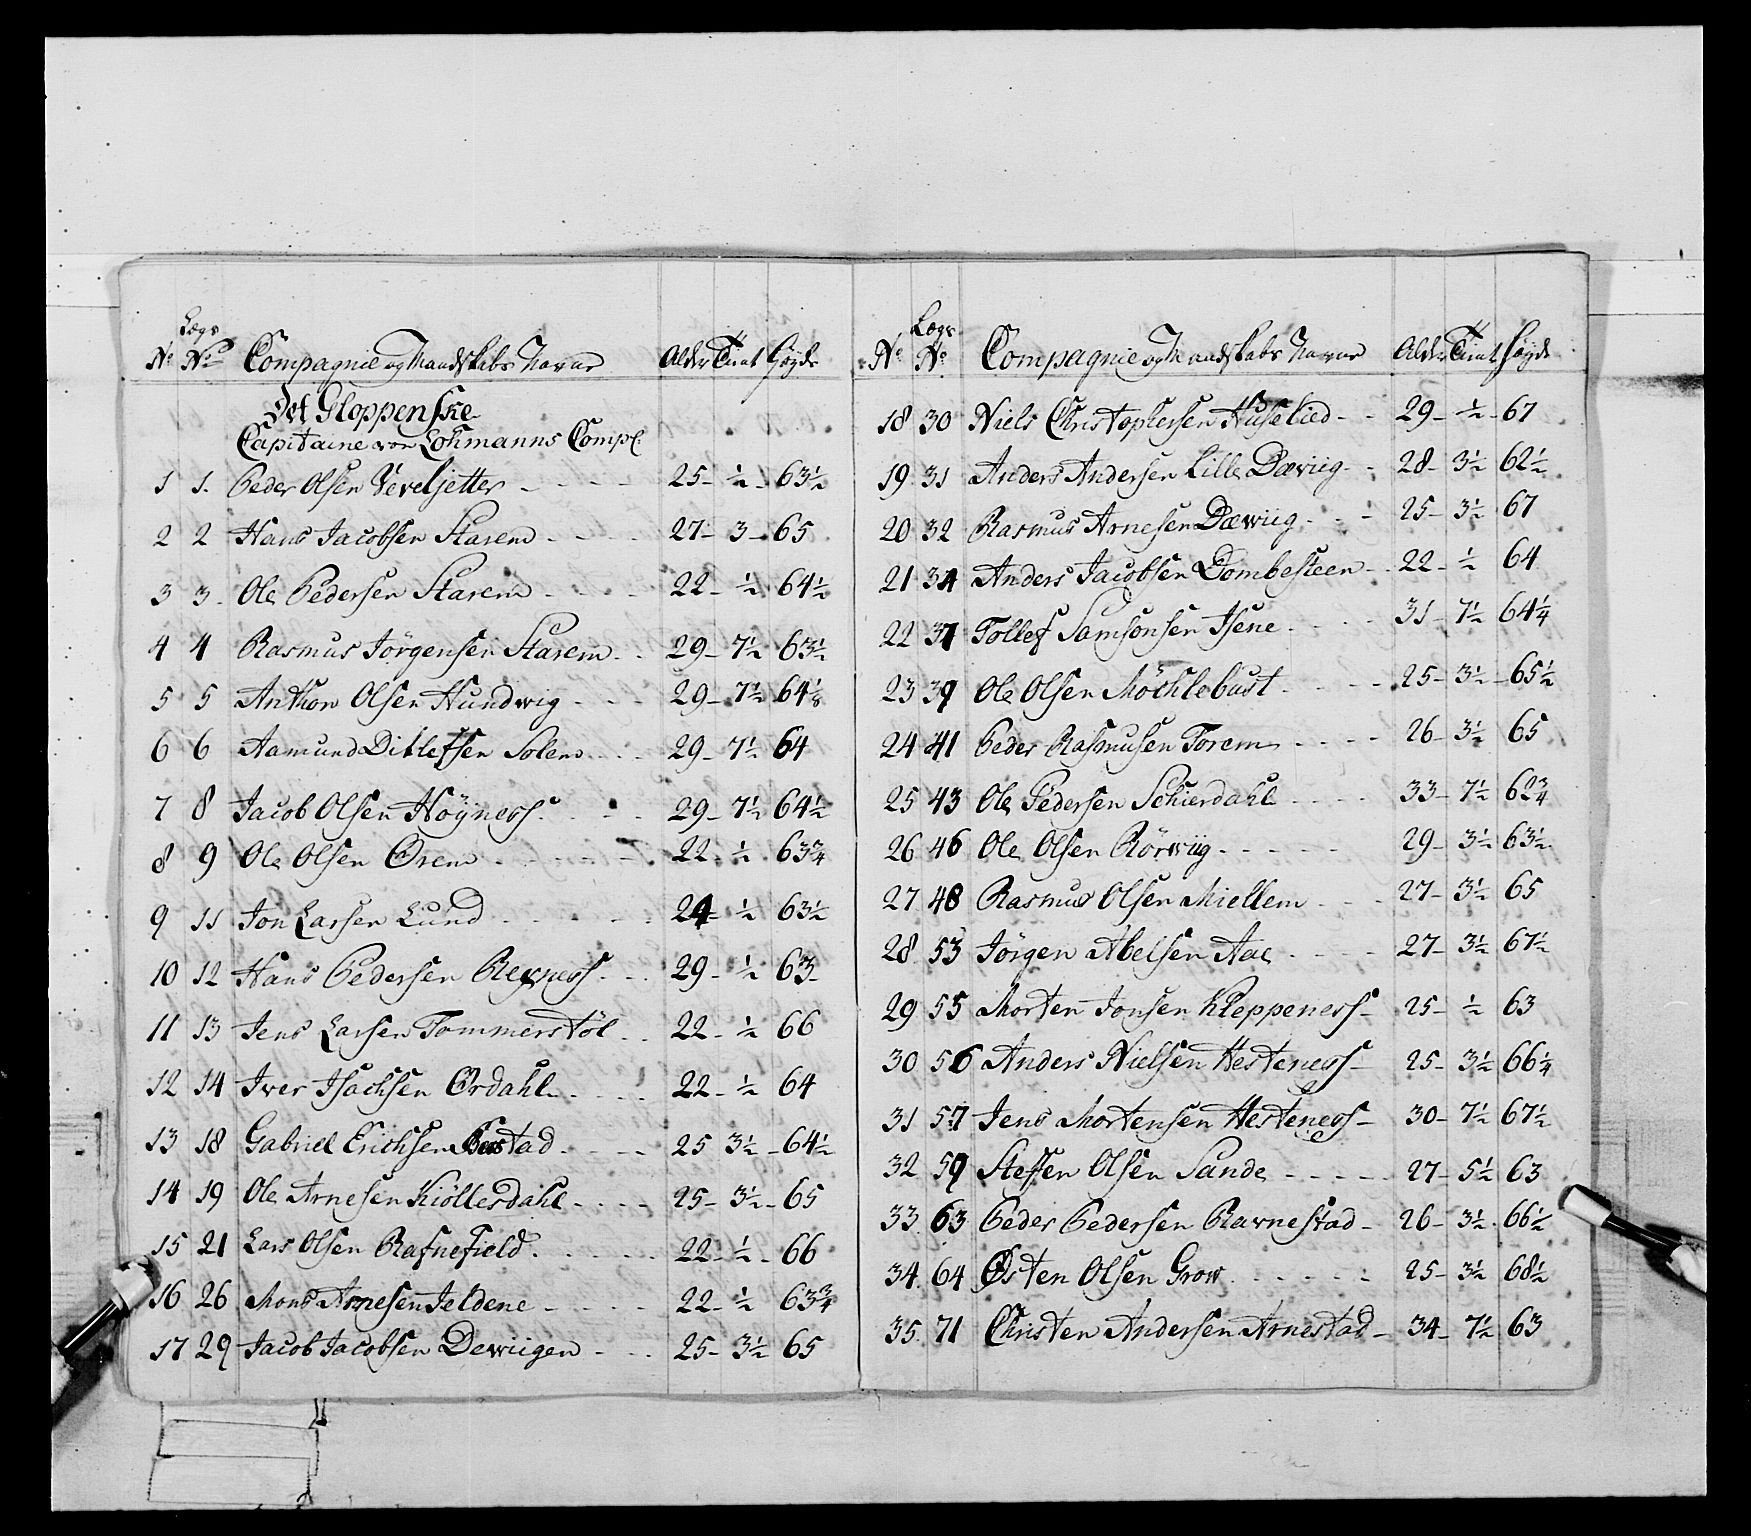 No Lægs No Compagnie og Mandskabs Navne Alder Tient Høyde
Det Gloppenske
Capitaine von Lohmanns Comp:
1 1. Peder Olsen Veveljetter 25 - ½ - 63½
2 2 Hans Jacobsen Starem 27 - 3 - 65
3 3 Ole Pedersen Starem 22 - ½ 64½
4 4 Rasmus Jörgensen Starem 29 - 7½ 63½
5 5 Anthon Olsen Hundwig 29 - 7½ 64⅛
6 6 Aamund Ditlefsen Solem 29 - 7½ 64
7 8 Jacob Olsen Höyness 29 - 7½ 64½
8 9 Ole Olsen Ørem 22 ½ 63¾
9 11 Jon Larsen Lund 24 - ½ 63½
10 12 Hans Pedersen Rexness 29 - ½ 63
11 13 Jens Larsen Tommerstöl 22 - ½ 66
12 14 Iver Isachsen Ørdahl 22 - ½ 64
13 18 Gabriel Erichsen 25 3½ - 64½
14 19 Ole Arnesen Kiöllesdahl 25 - 3½ - 65
15 21 Lars Olsen Rafnefield 22 - ½ - 66
16 26 Mons Arnesen Jeldene 22 - ½ 63¾
17 29 Jacob Jacobsen Dewiigen 25 - 3½ 65
No Lægs No Compagnie og Mandskabs Navne Alder Tient Høyde
18 30 Niels Christophersen Huselied 29 - ½ - 67
19 31 Anders Andersen Lille Dæviig 28 - 3½ 62½
20 32 Rasmus Arnesen Dæwiig 25 - 3½ 67
21 34 Anders Jacobsen Dombesteen 22 - ½ 64
22 37 Tollef Samsonsen Isene 31 - 7½ 64¼
23 39 Ole Olsen Möchlebust 25 - 3½ - 65½
24 41 Peder Rasmusen Torem 26 - 3½ 65
25 43 Ole Pedersen Schierdahl 33 - 7½ 62¾
26 46 Ole Olsen Rörwiig 29 - 3½ 63½
27 48 Rasmus Olsen Miellem 27 - 3½ 65
28 53 Jörgen Abelsen Aae 27 - 3½ 67½
29 55 Morten Jonsen Kleppeness 25 - ½ 63
30 56 Anders Nielsen Hesteness 25 - 3½ 66¼
31 57 Jens Mortensen Hesteness 30 - 7½ 67½
32 59 Steffen Olsen Sande 27 - 5½ 63
33 63 Peder Pedersen Ravnestad 26 - 3½ 66½
34 64 Østen Olsen Grow 25 - 3½ 68½
35 71 Christen Andersen Arnestad 34 - 7½ 63